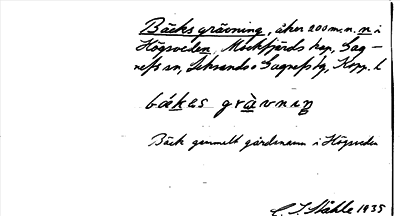 Bäcks grävning, åker 200 m. n. n i
Högsveden, Mockfjärds kap, Gag-
nefs sn, Leksands o Gagnefs tg, Kopp. l
bäkes grävnin
Bäck gammalt gårdsnamn i Högsveden
C. I. Ståhle 1935